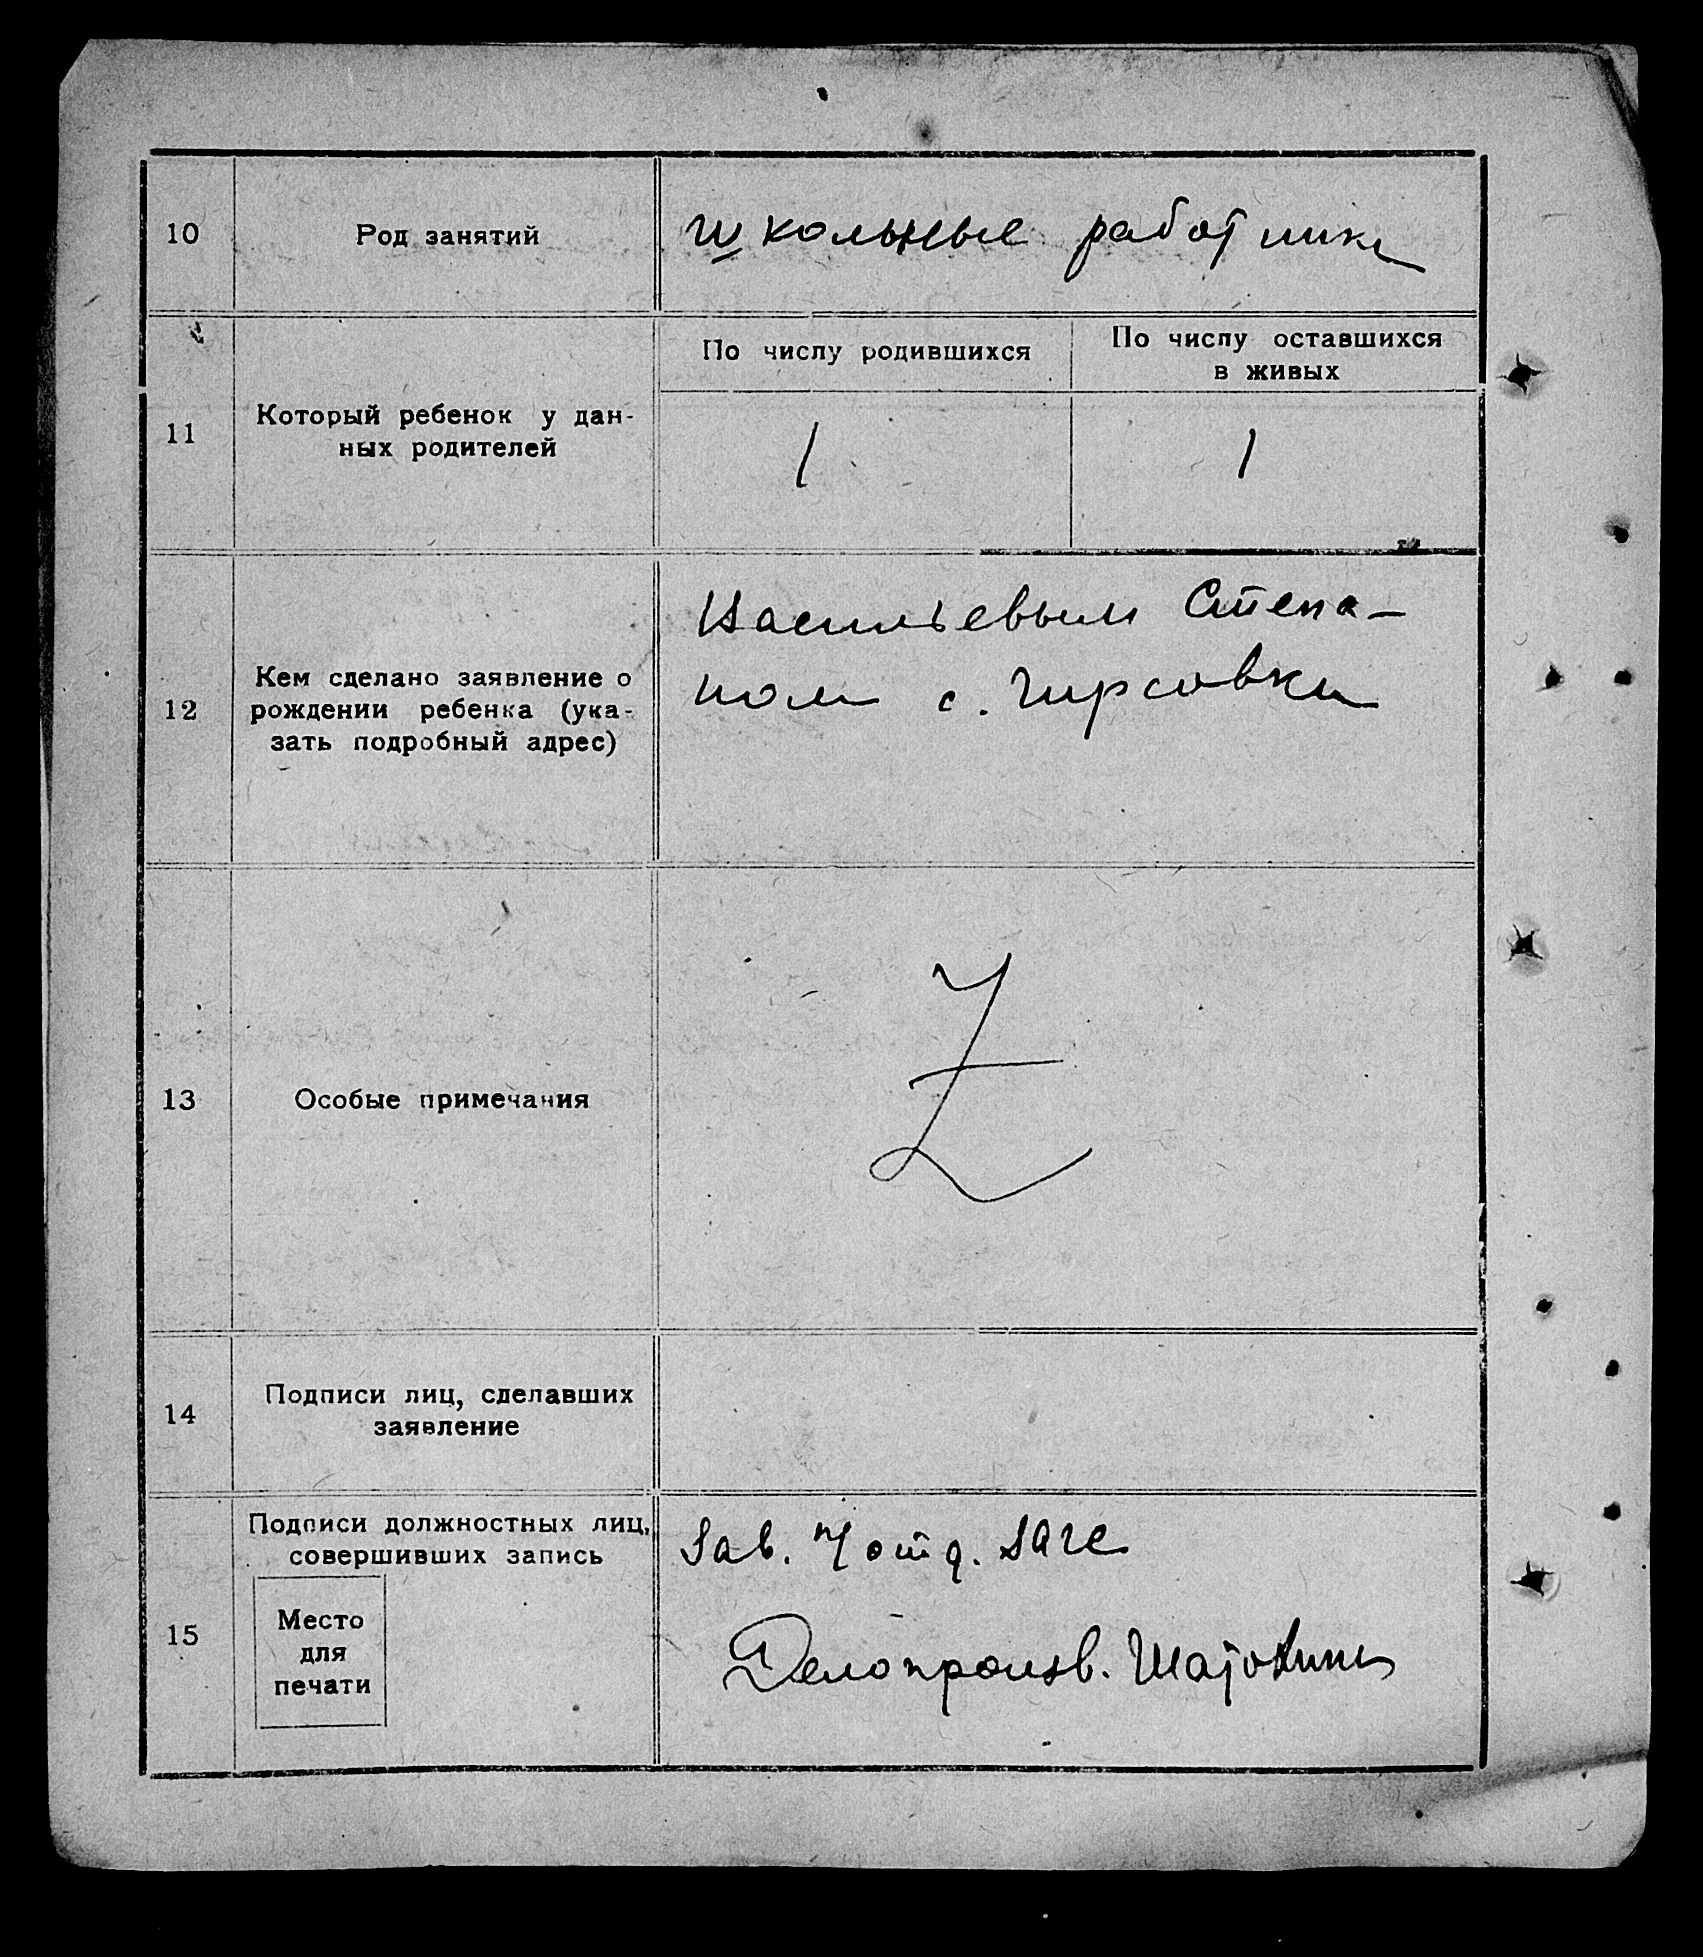 10
Род занятий
школьные работники
11
Который ребенок у дан-
ных родителей
По числу родившихся
По числу оставшихся
в живых
1
1
12
Кем сделано заявление о
рождении ребенка (ука-
зать подробный адрес)
Васильевым Степа-
ном с. Чирсовки
13
Особые примечания
Z
14
Подписи лиц, сделавших
заявление
15
Подписи должностных лиц,
совершивших запись
Место
для
печати
Зав. отд. загс
Делопроизв.